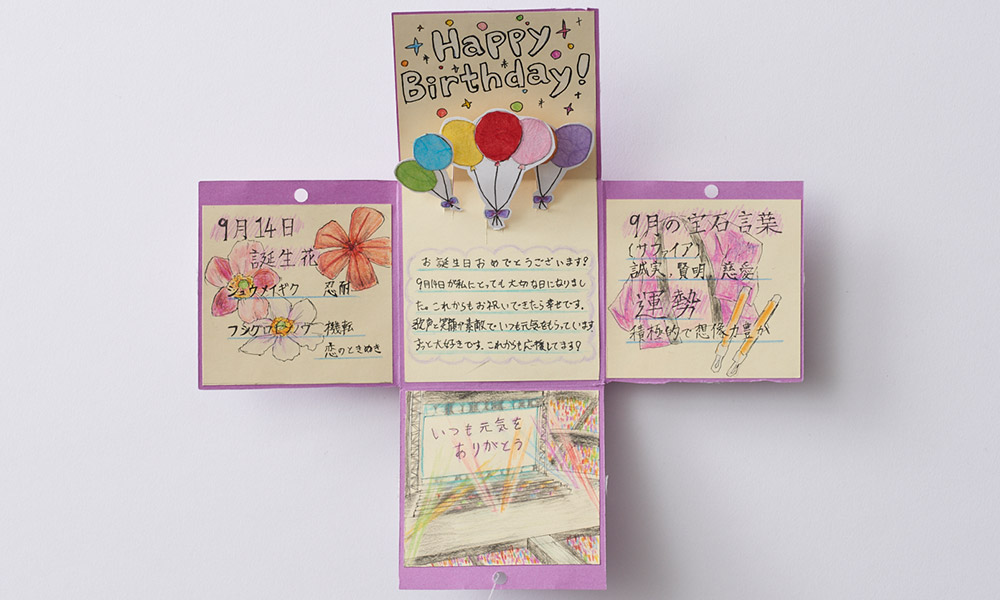 Happy
Birthday!
9月14日
誕生花
シュウメイギク 忍耐
フシグロセンノウ 機転
恋のときめき
お誕生日おめでとうございます!
9月14日が私にとっても大切な日になりまし
た。これからもお祝いできたら幸せです。
歌声と笑顔が素敵でいつも元気をもらっています
ずっと大好きです。これからも応援してます!
9月の宝石言葉
(サファイア)
誠実、賢明、慈愛
運勢
積極的で想像力豊か
いつも元気を
ありがとう